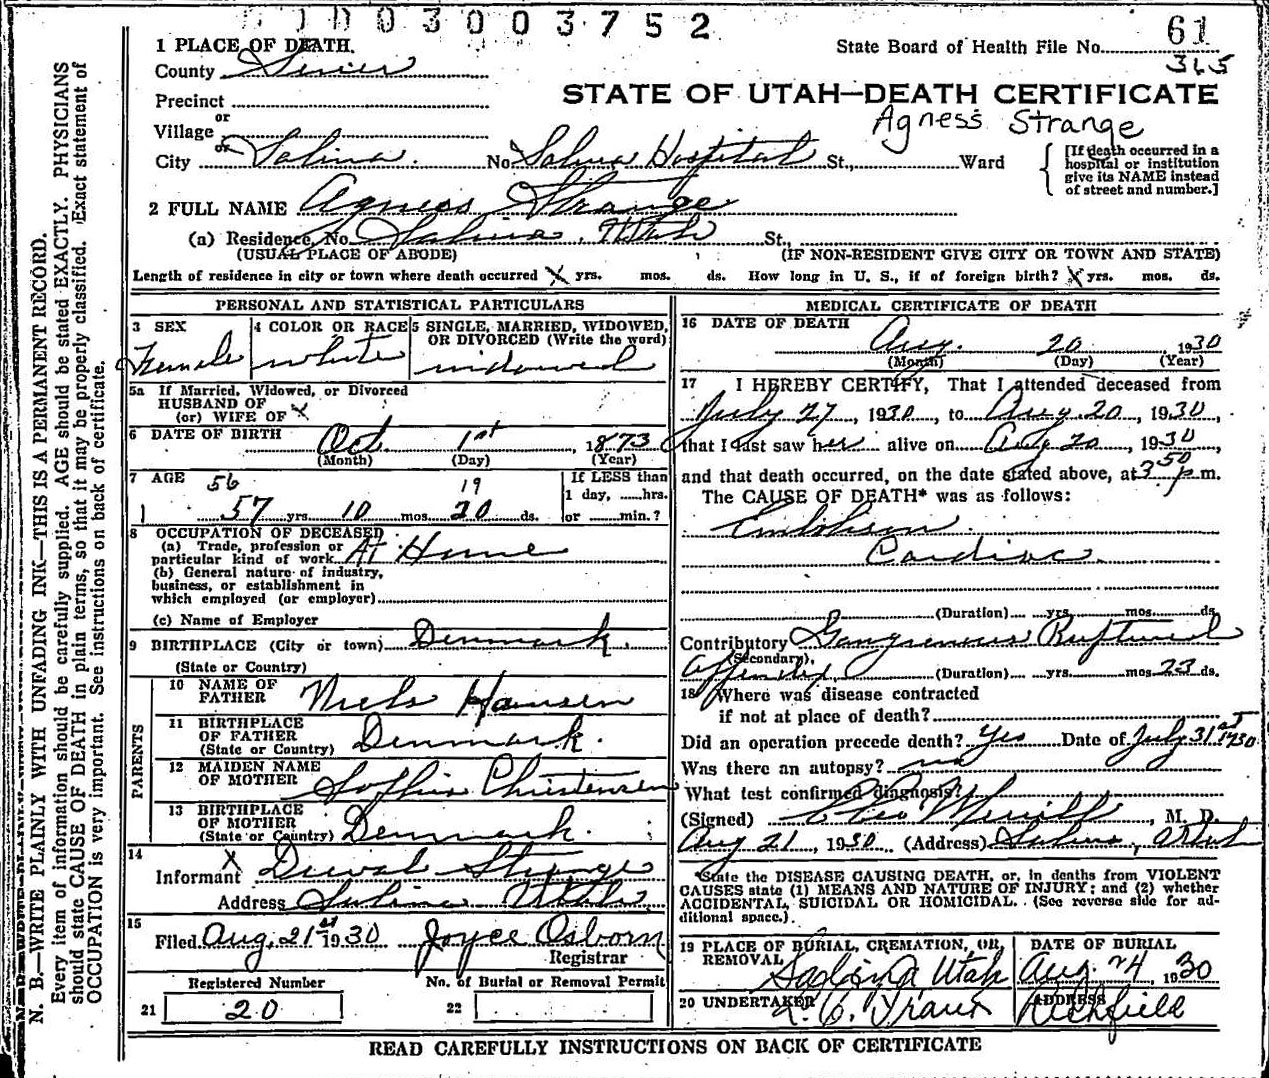 003003752
1 PLACE OF DEATH.
State Board of Health File No. 61
365
County Sevier
STATE OF UTAH—DEATH CERTIFICATE
Precinct
or
Village
or
Agness Strange
City Salina. No. Salina Hospital St., Ward
[If death occurred in a hospital or institution give its NAME instead of street and number.]
2 FULL NAME Agness Strange
(a) Residence, No. Salina, Utah St.,
(USUAL PLACE OF ABODE) (IF NON-RESIDENT GIVE CITY OR TOWN AND STATE)
Length of residence in city or town where death occurred X yrs. mos. ds. How long in U. S., if of foreign birth? X yrs. mos. ds.
PERSONAL AND STATISTICAL PARTICULARS
3 SEX Female
4 COLOR OR RACE white
5 SINGLE, MARRIED, WIDOWED, OR DIVORCED (Write the word) widowed
5a If Married, Widowed, or Divorced
HUSBAND OF
(or) WIFE OF X
6 DATE OF BIRTH Oct. 1st, 1873
(Month) (Day) (Year)
7 AGE 56 19
57 yrs. 10 mos. 20 ds.
If LESS than
1 day, ......hrs.
or ......min.?
8 OCCUPATION OF DECEASED
(a) Trade, profession or
particular kind of work At Home
(b) General nature of industry,
business, or establishment in
which employed (or employer)
(c) Name of Employer
9 BIRTHPLACE (City or town) Denmark.
(State or Country)
PARENTS
10 NAME OF FATHER Niels Hansen
11 BIRTHPLACE OF FATHER (State or Country) Denmark.
12 MAIDEN NAME OF MOTHER Christensen
13 BIRTHPLACE OF MOTHER (State or Country) Denmark.
14 X
Informant Strange
Address Salina Utah.
15
Filed Aug, 21st 1930 Joyce Osborn
Registrar
Registered Number
No. of Burial or Removal Permit
21 20
22
MEDICAL CERTIFICATE OF DEATH
16 DATE OF DEATH
Aug. 20 1930
(Month) (Day) (Year)
17 I HEREBY CERTIFY, That I attended deceased from
July 27, 1930, to Aug. 20, 1930,
that I last saw her alive on Aug 20, 1930,
and that death occurred, on the date stated above, at 3 50 p.m.
The CAUSE OF DEATH* was as follows:
Embolism.
Cardiac.
(Duration) yrs. mos. ds.
Contributory Gangrenous Ruptured
(Secondary)
appendix. (Duration) yrs. mos. 23 ds.
18 Where was disease contracted
if not at place of death?
Did an operation precede death? yes Date of July 31st 1930
Was there an autopsy? no
What test confirmed diagnosis?
(Signed) Merrill, M. D.
Aug 21, 1930 (Address) Salina, Utah
*State the DISEASE CAUSING DEATH, or, in deaths from VIOLENT
CAUSES state (1) MEANS AND NATURE OF INJURY; and (2) whether
ACCIDENTAL, SUICIDAL OR HOMICIDAL. (See reverse side for additional space.)
19 PLACE OF BURIAL, CREMATION, OR REMOVAL
Salina Utah
DATE OF BURIAL
Aug. 24, 1930
20 UNDERTAKER
ADDRESS
Richfield
READ CAREFULLY INSTRUCTIONS ON BACK OF CERTIFICATE
N. B.—WRITE PLAINLY WITH UNFADING INK—THIS IS A PERMANENT RECORD.
Every item of information should be carefully supplied. AGE should be stated EXACTLY. PHYSICIANS
should state CAUSE OF DEATH in plain terms, so that it may be properly classified. Exact statement of
OCCUPATION is very important. See instructions on back of certificate.